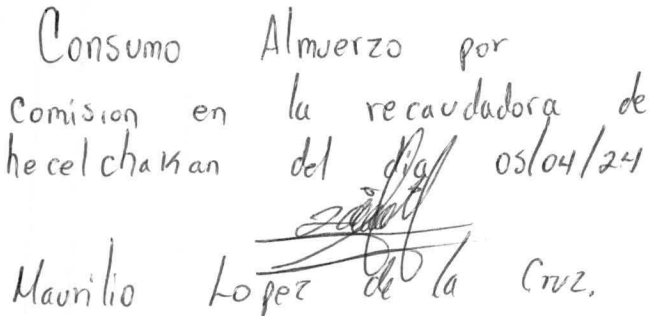 Consumo Almuerzo por
Comision en la recaudadora de
hecelchakan del dia 05/04/24
Maurilio Lopez de la Cruz.